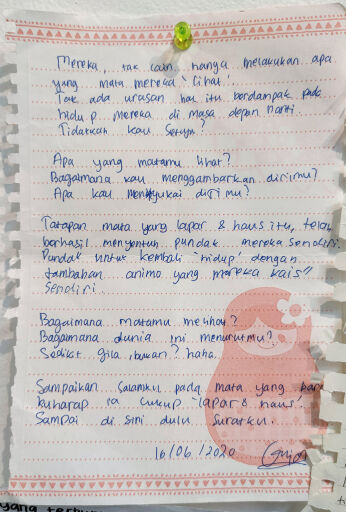 Mereka, tak lain, hanya melakukan apa
yang mata mereka 'lihat'.
Tak ada urasan hal itu berdampak pada
hidup mereka di masa depan nanti.
Tidakkah kau setuju?
Apa yang matamu lihat?
Bagaimana kau menggambarkan dirimu?
Apa kau menyukai dirimu?
Tatapan mata yang lapar & haus itu, telah
berhasil menyentuh pundak mereka sendiri.
Pundak untuk kembali 'hidup' dengan
tambahan animo yang mereka kais"
sendiri.
Bagaimana matamu melihat?
Bagaimana dunia ini menurutmu?
Sedikit gila bukan? haha.
Sampaikan salamku pada mata yang baru
kuharap ia cukup 'lapar & haus'.
Sampai di sini dulu suratku.
16/06/2020